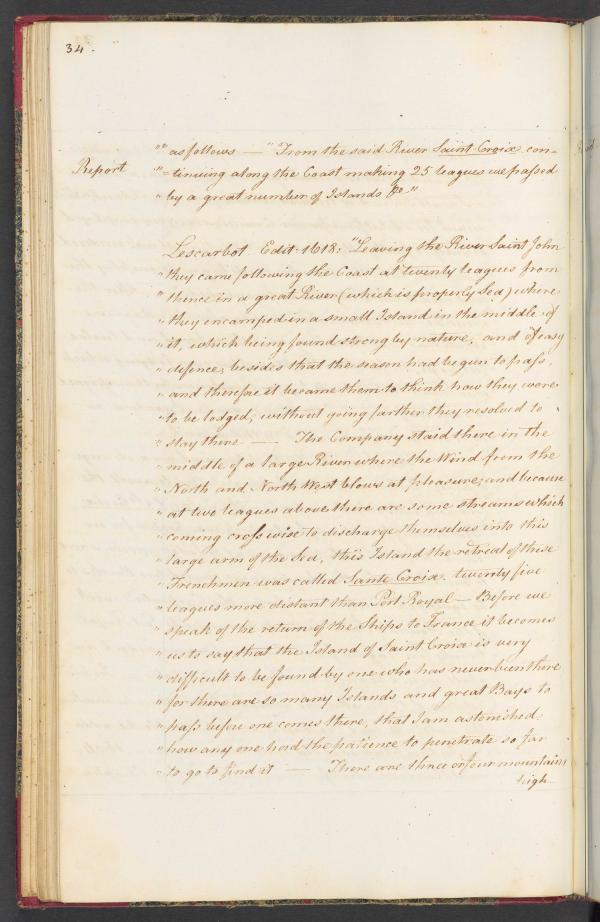 34.
"" as follows — "From the said River Saint Croix con-
Report "=tinuing along the Coast making 25 leagues we passed
" by a great number of Islands &c"
Lescarbot Edit: 1618: "Leaving the River Saint John
" they came following the Coast at twenty leagues from
" thence in a great River (which is properly Sea) where
" they encamped in a small Island in the middle of
" it, which being found strong by nature, and of easy
" defence, besides that the season had begun to pass,
" and therefore it became them to think how they were
" to be lodged, without going farther they resolved to
" stay there — The Company staid there in the
" middle of a large River where the Wind from the
" North and North West blows at pleasure; and because
" at two leagues above there are some streams which
" coming cross wise to discharge themselves into this
" large arm of the Sea, this Island the retreat of these
" Frenchmen was called Sante Croix twenty five
" leagues more distant than Port Royal — Before we
" speak of the return of the Ships to France it becomes
" us to say that the Island of Saint Croix is very
" difficult to be found by one who has never been there
" for there are so many Islands and great Bays to
" pass before one comes there, that I am astonished
" how any one had the patience to penetrate so far
" to go to find it — There are three or four mountains
high